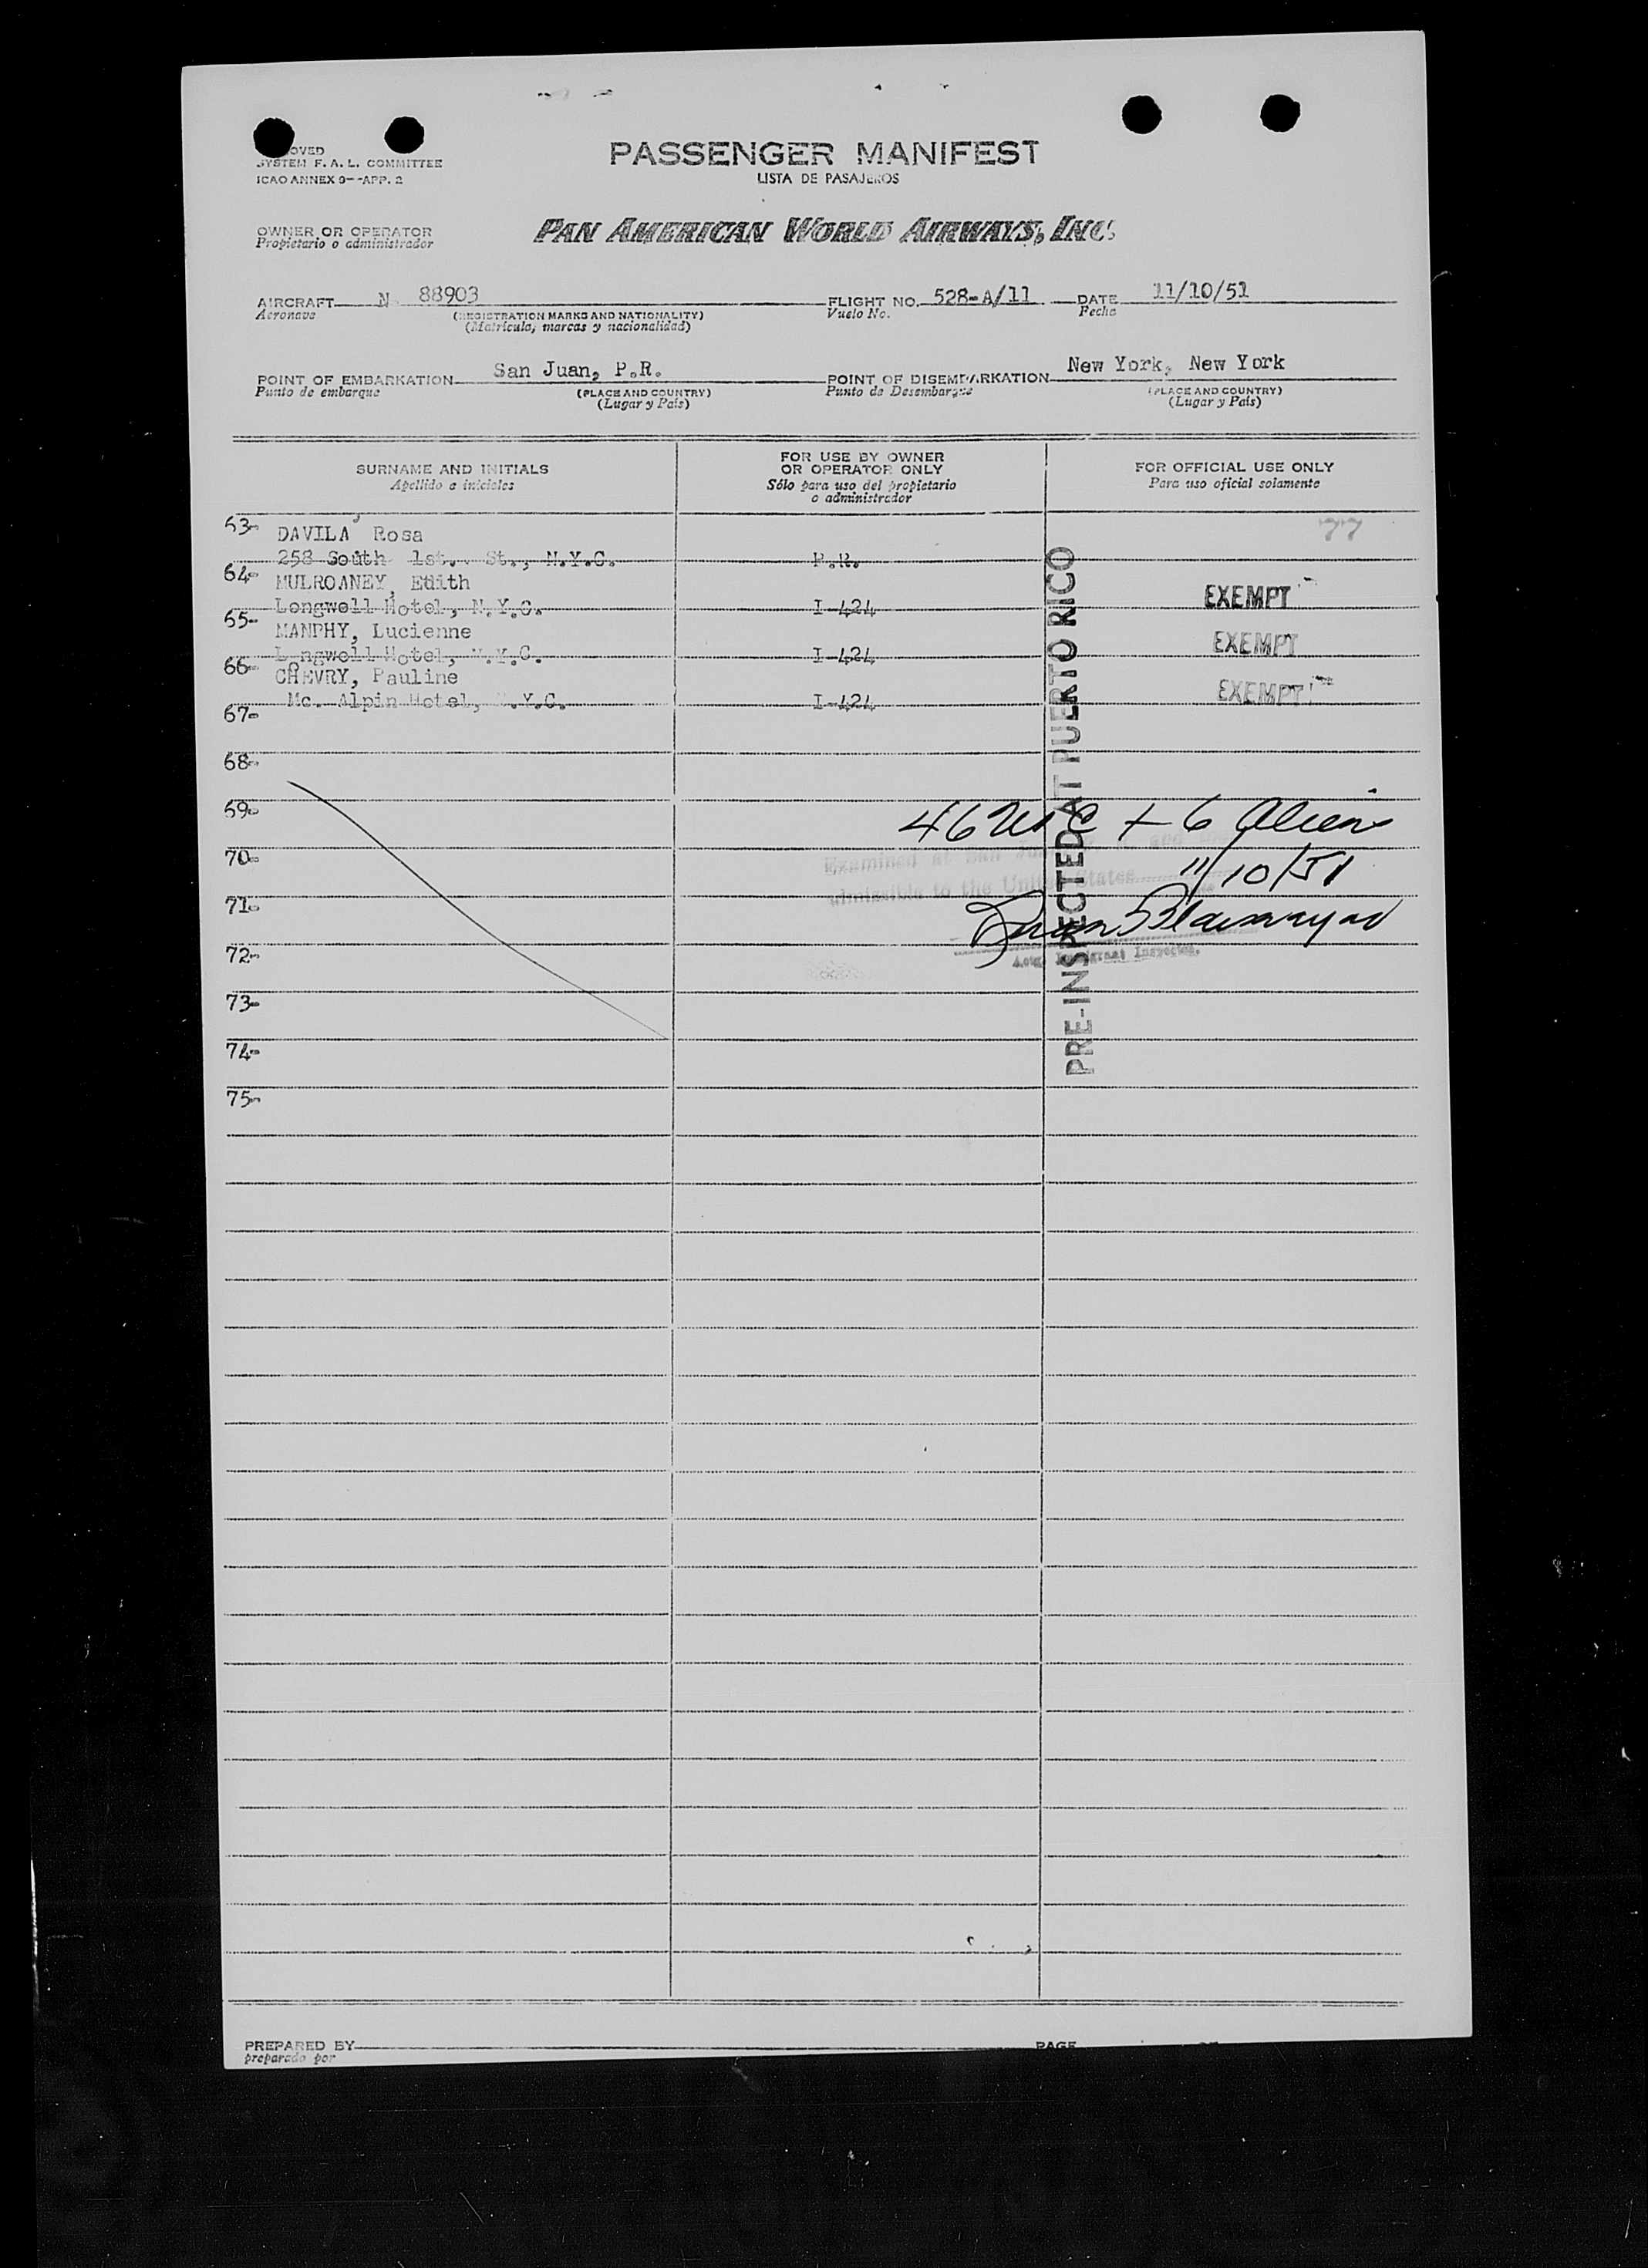 OVED
SYSTEM F. A. L. COMMITTEE
ICAO ANNEX 9--APP. 2
PASSENGER MANIFEST
LISTA DE PASAJEROS
OWNER OR OPERATOR
Propietario o administrador
PAN AMERICAN WORLD AIRWAYS, INC.
AIRCRAFT N 88903 FLIGHT NO. 528-A/11 DATE 11/10/51
Aeronave (REGISTRATION MARKS AND NATIONALITY) Vuelo No. Fecha
(Matricula, marcas y nacionalidad)
POINT OF EMBARKATION San Juan, P.R. POINT OF DISEMBARKATION New York, New York
Punto de embarque (PLACE AND COUNTRY) Punto de Desembarque (PLACE AND COUNTRY)
(Lugar y País) (Lugar y País)
SURNAME AND INITIALS FOR USE BY OWNER OR OPERATOR ONLY FOR OFFICIAL USE ONLY
Apellido e iniciales Sólo para uso del propietario o administrador Para uso oficial solamente
63- DAVILA, Rosa 77
258 South 1st. St., N.Y.C. P.R.
64- MULROANEY, Edith EXEMPT
Longwell Hotel, N.Y.C. I-424
65- MANPHY, Lucienne EXEMPT
Longwell Hotel, N.Y.C. I-424
66- CHEVRY, Pauline EXEMPT
Mc. Alpin Hotel, N.Y.C. I-424
67-
68-
69-
46 USC + 6 Aliens
70-
Examined at San Juan and
11/10/51
admissible to the United States
71-
72-
Immigrant Inspector.
73-
74-
75-
PRE-INSPECTED AT PUERTO RICO
PREPARED BY PAGE
preparado por